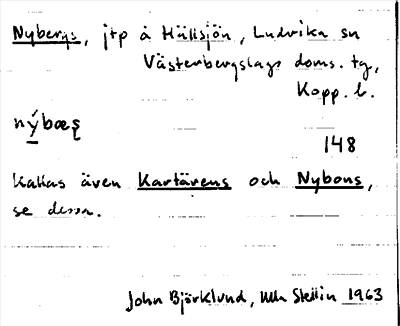 Nybergs, jtp å Hällsjön, Ludvika sn
Västerbergslags doms. tg,
Kopp. l.
nýbæȩ
148
Kallas även Kartärens och Nybons,
se dessa.
John Björklund, Stellin 1963